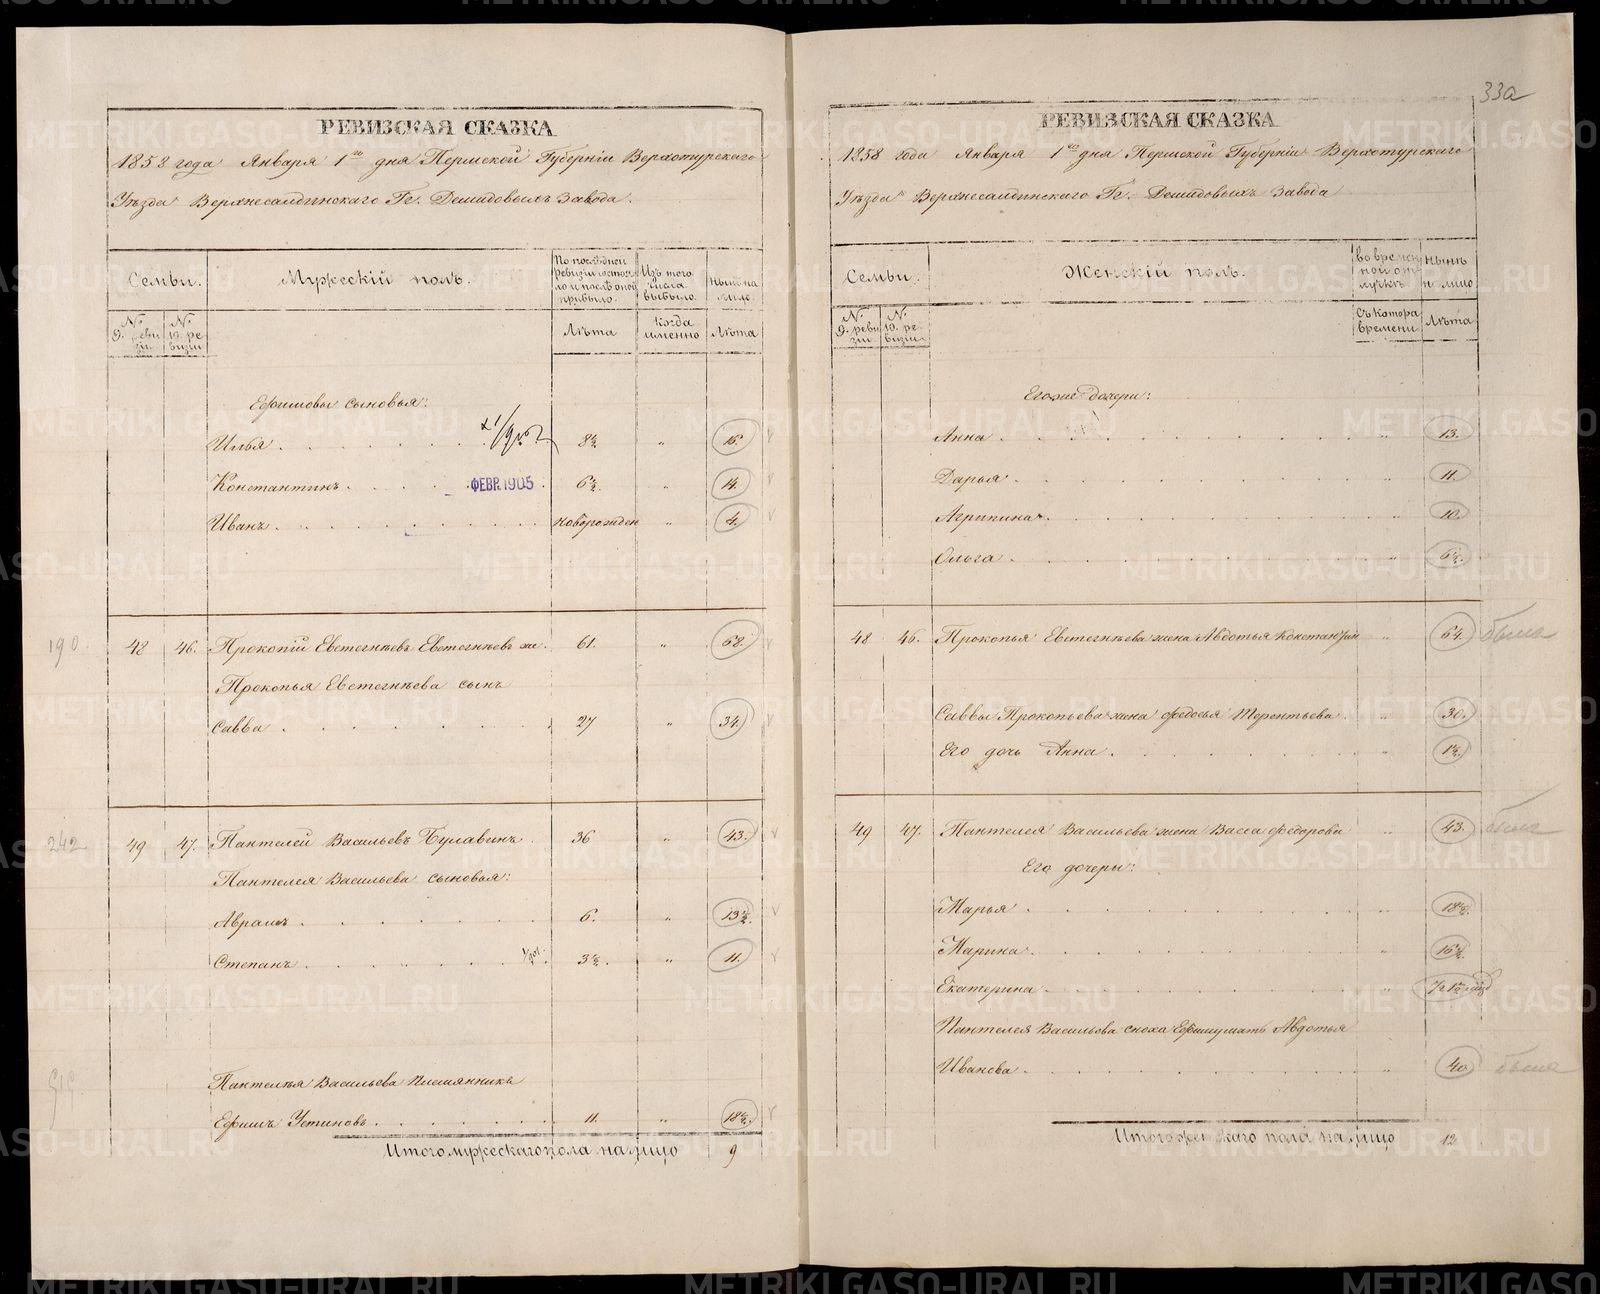 РЕВИЗСКАЯ СКАЗКА
1858 года Января 1го дня Пермской Губернiи Верхотурскаго
Уѣзда Верхнесалдинскаго Гг. Демидовыхъ Завода.
Семьи.
Мужескiй полъ.
По послѣдней ревизiи состояло и послѣ оной прибыло.
Изъ того числа выбыло.
Нынѣ на лицо.
№ 9. ревизiи
№ 10. ревизiи
Лѣта
Когда именно
Лѣта
Ефимовы сыновья:
Илья 8½ " 16
Константинъ ФЕВР. 1905 6½ " 14.
Иванъ новорожден " 4.
190. 48 46. Прокопiй Евстегнѣевъ Евстегнѣевъ же. 61. " 68.
Прокопья Евстегнѣева сынъ
Савва 27 " 34.
242 49 47. Пантелей Васильевъ Булавинъ. 36 " 43.
Пантелея Васильева сыновья:
Аврамъ 6. " 13½.
Степанъ 3½. " 11.
Пантелѣя Васильева племянникъ
Ефимъ Устиновъ 11. " 18½.
Итого мужескаго пола на лицо 9
33а
РЕВИЗСКАЯ СКАЗКА
1858 года Января 1го дня Пермской Губернiи Верхотурскаго
Уѣзда Верхнесалдинскаго Гг. Демидовыхъ Завода
Семьи.
Женскiй полъ.
Во временной отлучкѣ
Нынѣ на лицо
№ 9. ревизiи
№ 10. ревизiи
Съ котора времени
Лѣта
Его же дочери:
Анна " 13.
Дарья 11.
Агрипина 10.
Ольга " 6½.
48 46. Прокопья Евстегнѣева жена Авдотья Констан " 64.
Саввы Прокопьева жена Федосья Терентьева. " 30.
Его дочь Анна " 1½.
49 47. Пантелея Васильева жена Васса Федорова " 43.
Его дочери:
Марья " 18½.
Марина " 16½.
Екатерина "
Пантелея Васильева сноха Ефиму мать Авдотья
Иванова " 40
Итого женскаго пола на лицо 12
METRIKI.GASO-URAL.RU